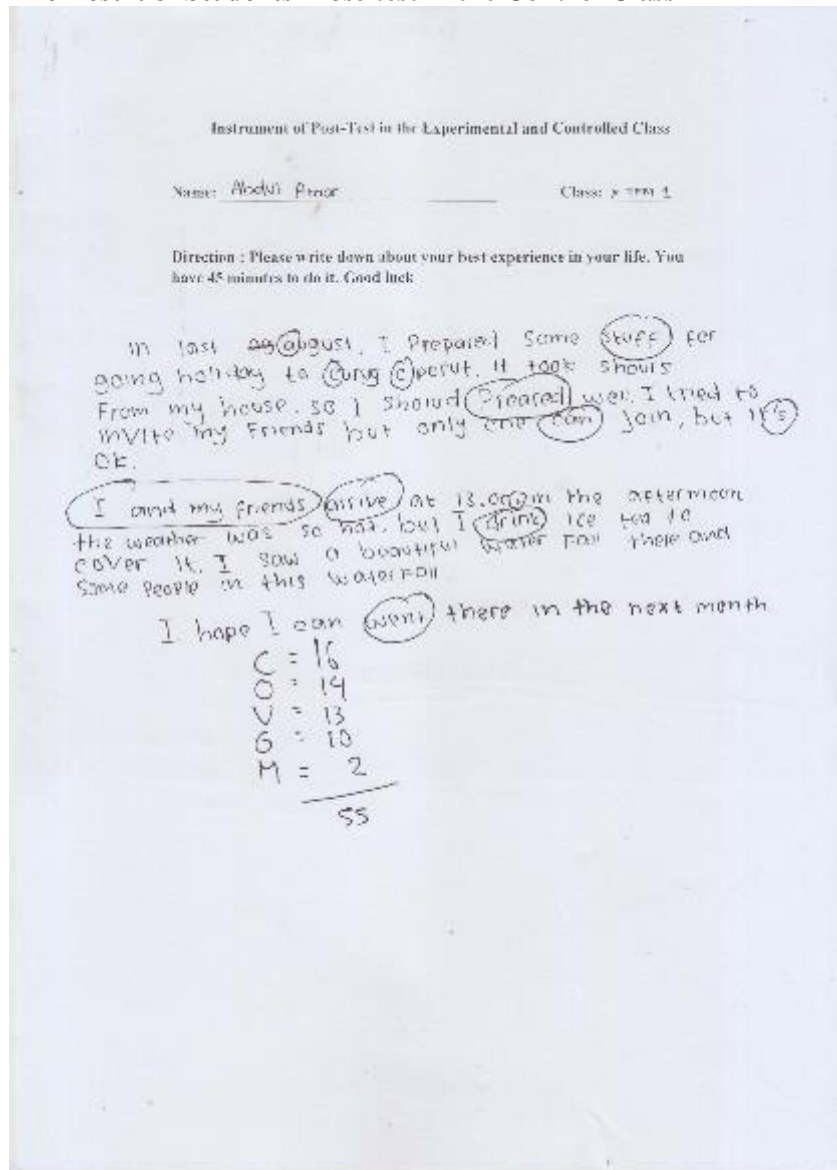 Instrument of Post-Test in the Experimental and Controlled Class
Name: Abdul Class: X TPM 1
Direction : Please write down about your best experience in your life. You
have 45 minutes to do it. Good luck
in last ag august, I Prepared some stuff for
going holiday to curug ciperut. it took 5hours
From my house. so I should Preared well. I tried to
invite my Friends but only one can join, but it's
OK.
I and my friends arrive at 13.00 in the afternoon
the weather was so hot. but I drink ice tea to
cover it. I saw a beautiful water Fall there and
some People in this waterFall
I hope I can went there in the next month
C = 16
O = 14
V = 13
G = 10
M = 2
55